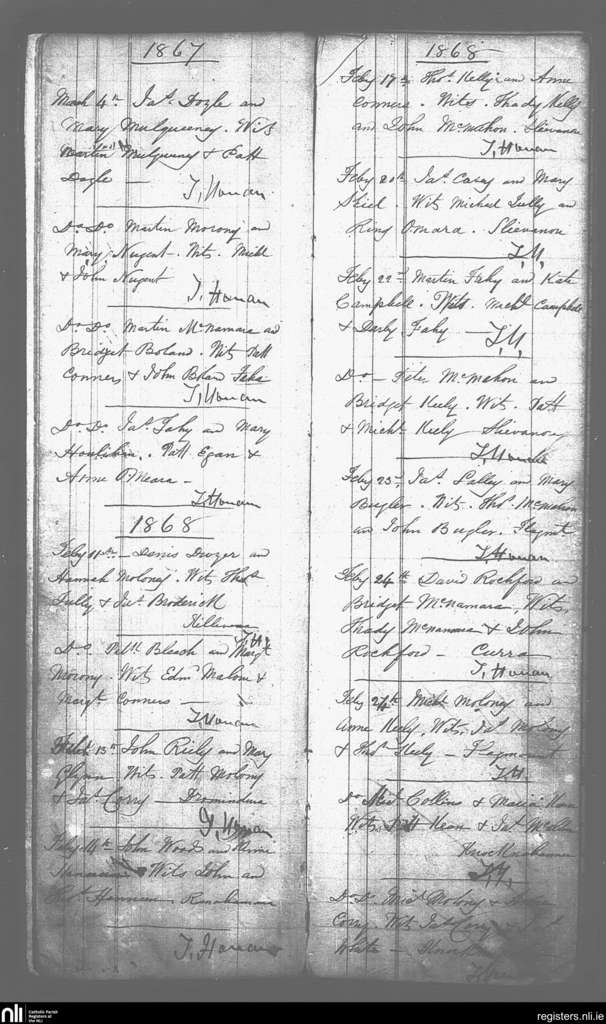 1867
March 4th Jas. Doyle and
Mary Mulqueeney. Wits
Martin Mulqueeney & Patt
Doyle —
T, Honan
Do. Do. Martin Morony an
Mary Nugent. Wits. Michl
& John Nugent
T, Honan
Do. Do. Martin McNamara and
Bridget Boland. Wits Patt
Conners & John
T, Honan
Do. Do. Jas. Fahy and Mary
Houlihan. Patt Egan &
Anne OMeara —
T, Honan
1868
Feby 11th — Denis Dwyer an
Hannah Molony. Wits Thos.
Lully & Jas. Broderick
T.H.
Do. Patt Bleach an Margt
Morony. Wits Edm Malone &
Margt Conners —
T, Honan
13th John Riely and Mary
Glynn. Wits. Patt Molony
& Jas. Corry — Dromindoora
T, Honan
Feby 14th John Wood and Anne
Wits John an
T, Honan
1868
Feby 17th Thos. Kelly and Anne
Conners. Wits. Thady Kelly
and John McMahon.
T, Honan
Feby 20th Jas. Casey an Mary
Wits Michael Lully an
King Omara.
T, H,
Feby 22nd Martin Fahy and Kate
Campbell. Wits. Michl Campbell
& Darby Fahy —
T, H,
Do — Peter McMahon an
Bridget Keely. Wits. Patt
& Michl Keely
Feby 23rd Jas. Lalley an Mary
Bugler. Wits. Thos. McMahon
an John Bugler. Flagmt
T, Honan
Feby 24th David Rochford an
Bridget McNamara, Wits,
Thady McNamara & John
Rochford — Curra
T, Honan
Feby 24th Michl Molony and
Anne Keely, Wits, Jas. Molony
& Thos. Keely — Flagmount
T.H.
Do Michl Collins & Maria
Wits, Patt Kean & Jas.
T.H.
Do. Do. Michl Molony &
Corry Wits Jas. Corry &
White —
nli
Catholic Parish
Registers at
the NLI
registers.nli.ie